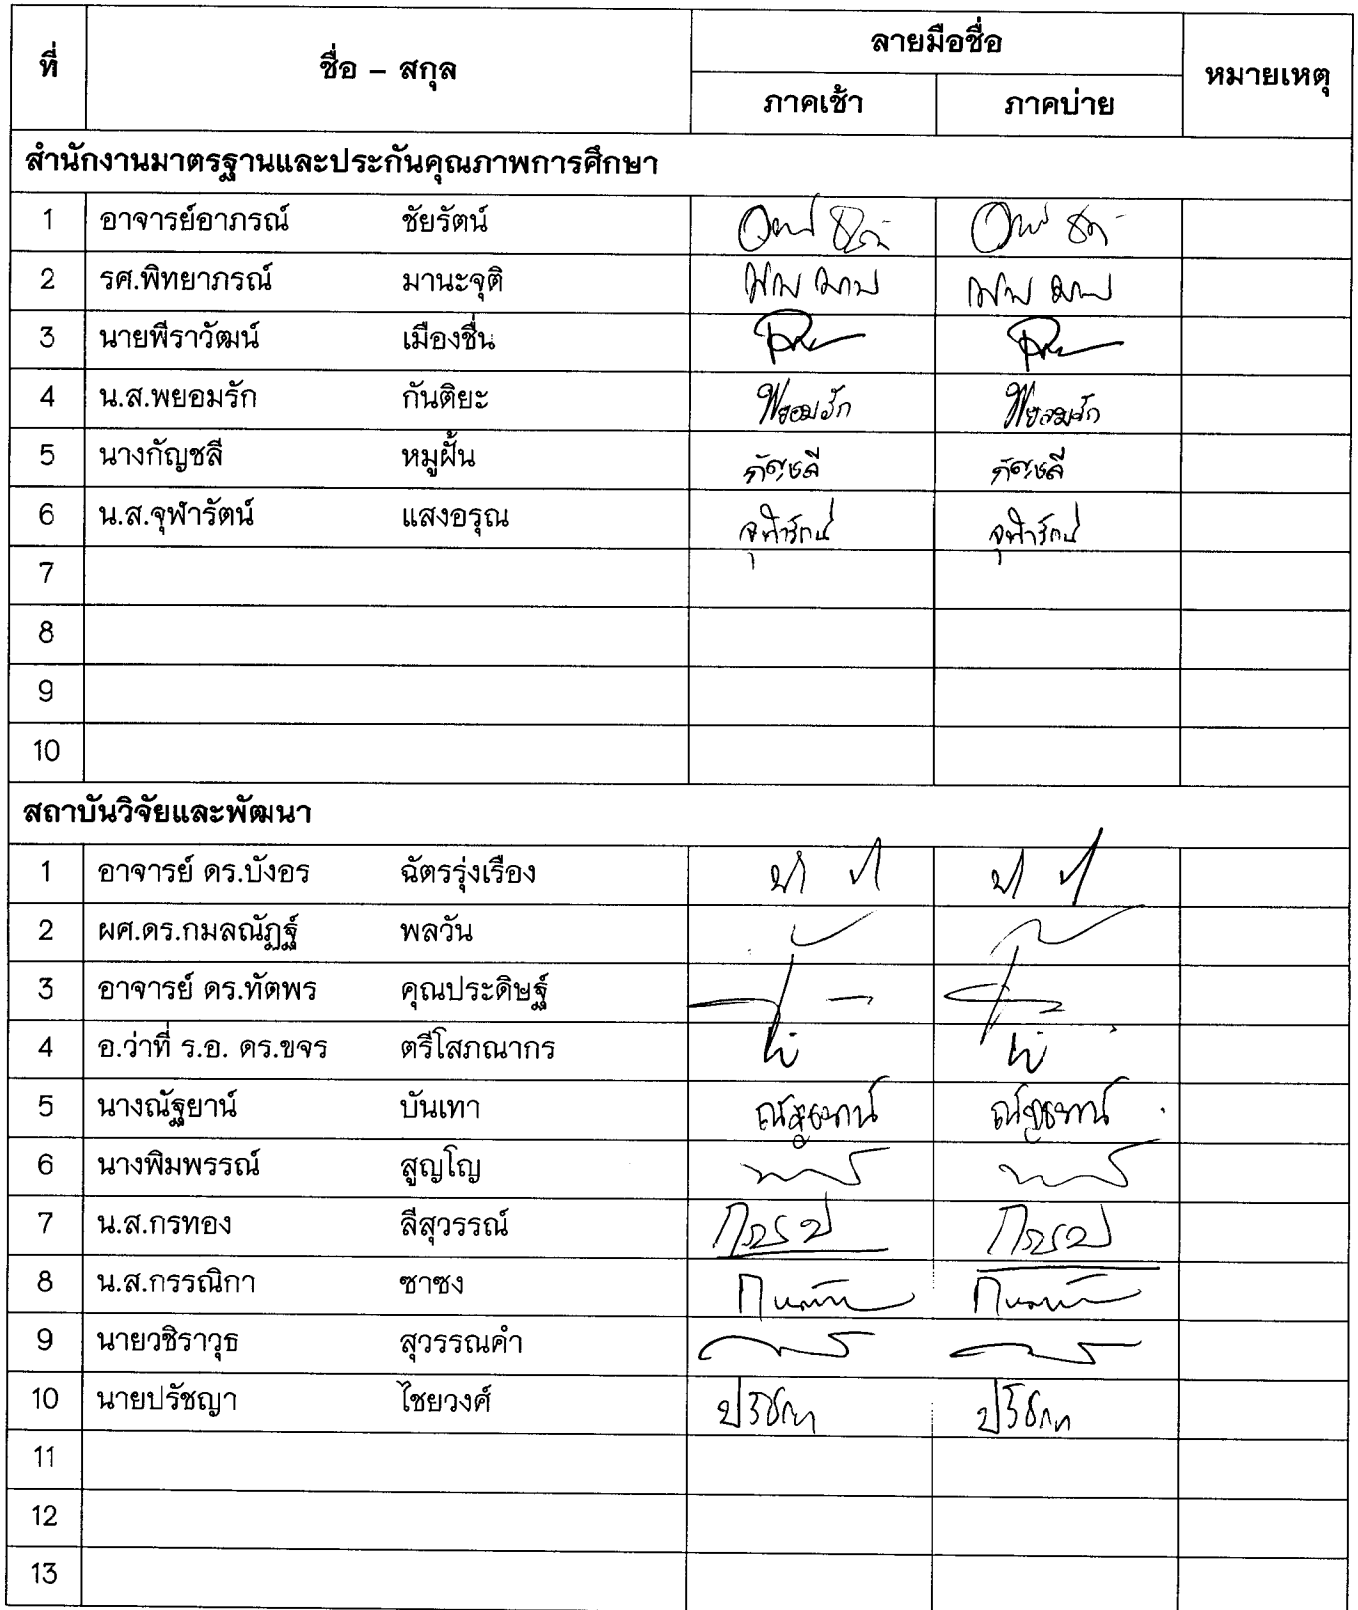 ที่ ชื่อ – สกุล ลายมือชื่อ หมายเหตุ
ภาคเช้า ภาคบ่าย
สำนักงานมาตรฐานและประกันคุณภาพการศึกษา
1 อาจารย์อาภรณ์ ชัยรัตน์
2 รศ.พิทยาภรณ์ มานะจุติ
3 นายพีราวัฒน์ เมืองชื่น
4 น.ส.พยอมรัก กันติยะ พยอมรัก พยอมรัก
5 นางกัญชลี หมูฝั้น กัญชลี กัญชลี
6 น.ส.จุฬารัตน์ แสงอรุณ จุฬารัตน์ จุฬารัตน์
7
8
9
10
สถาบันวิจัยและพัฒนา
1 อาจารย์ ดร.บังอร ฉัตรรุ่งเรือง
2 ผศ.ดร.กมลณัฏฐ์ พลวัน
3 อาจารย์ ดร.ทัตพร คุณประดิษฐ์
4 อ.ว่าที่ ร.อ. ดร.ขจร ตรีโสภณากร
5 นางณัฐยาน์ บันเทา ณัฐยาน์ ณัฐยาน์
6 นางพิมพรรณ์ สูญโญ
7 น.ส.กรทอง ลีสุวรรณ์
8 น.ส.กรรณิกา ซาซง
9 นายวชิราวุธ สุวรรณคำ
10 นายปรัชญา ไชยวงศ์ ปรัชญา ปรัชญา
11
12
13